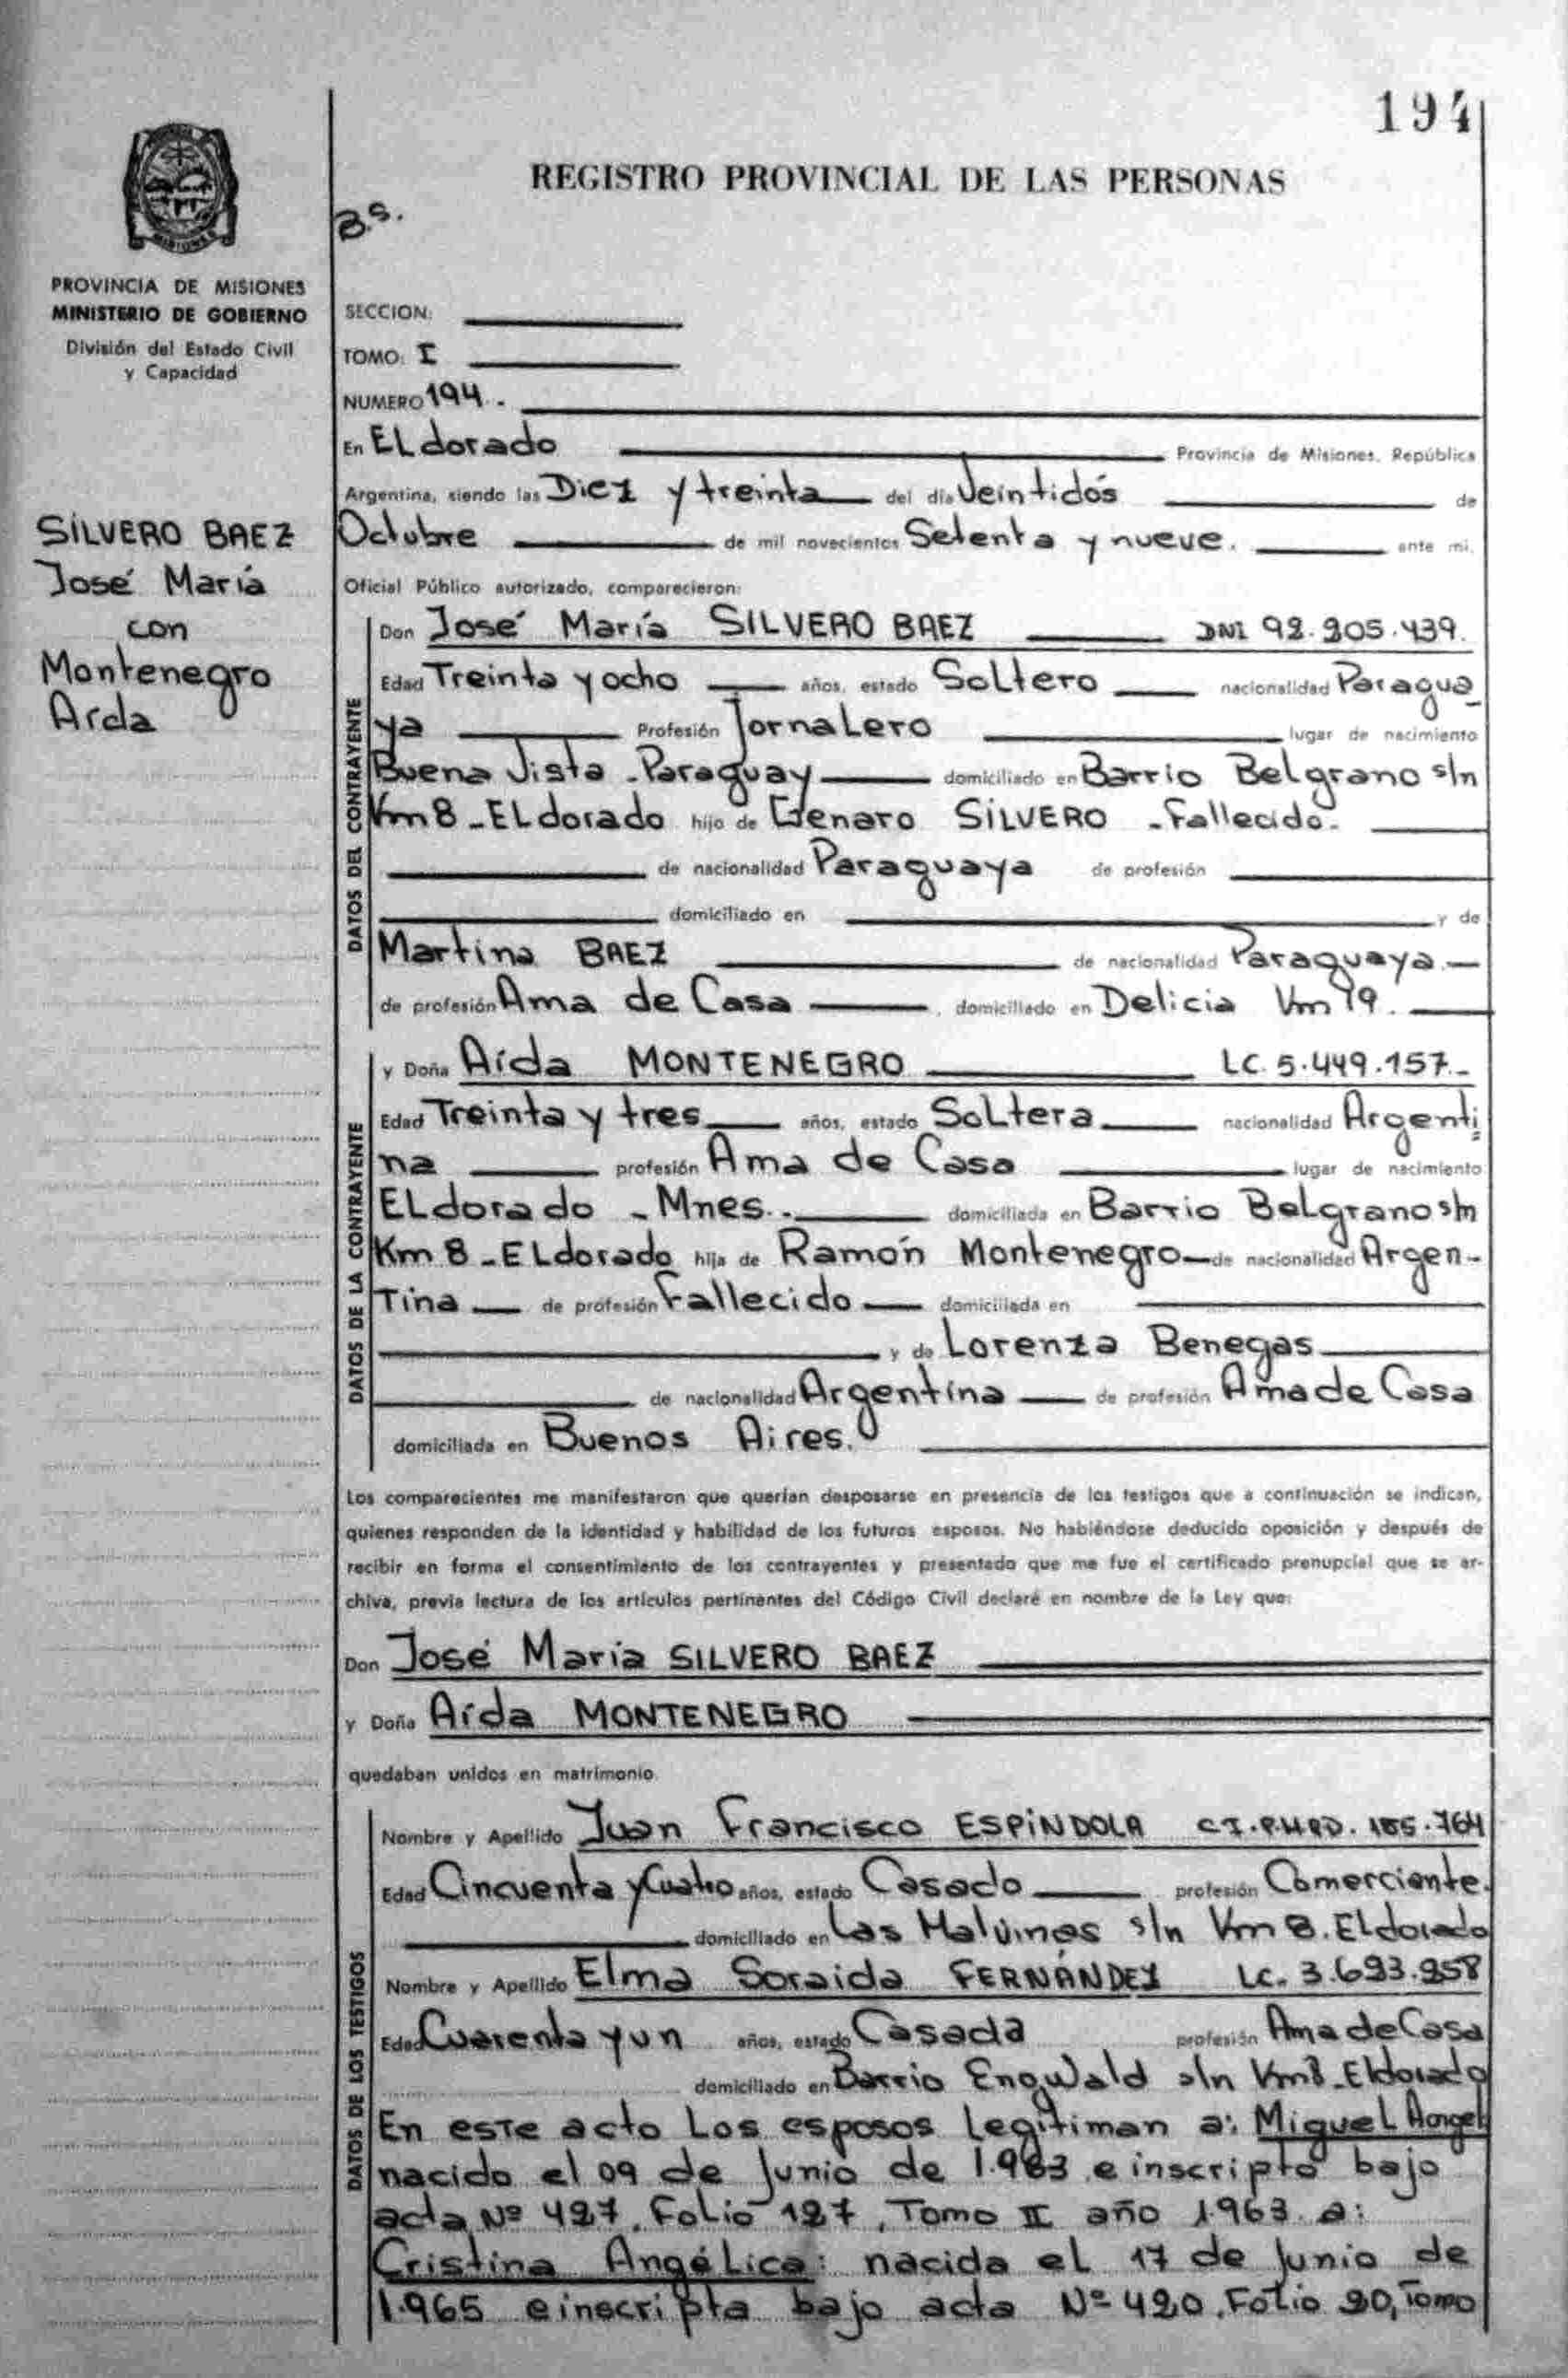 194
REGISTRO PROVINCIAL DE LAS PERSONAS
B.S.
MISIONES
PROVINCIA DE MISIONES
MINISTERIO DE GOBIERNO
División del Estado Civil
y Capacidad
SILVERO BAEZ
José María
con
Montenegro
Aída
SECCION:
TOMO: I
NUMERO 194.-
En ELdorado Provincia de Misiones, República
Argentina, siendo las Diez y treinta del día Veintidós de
Octubre de mil novecientos Setenta y nueve. ante mi.
Oficial Público autorizado, comparecieron:
DATOS DEL CONTRAYENTE
Don José María SILVERO BAEZ DNI 92.905.439.
Edad Treinta y ocho años, estado SoLtero nacionalidad Paragua
ya Profesión JornaLero lugar de nacimiento
Buena Vista - Paraguay domiciliado en Barrio BeLgrano s/n
Km 8 - ELdorado hijo de Genaro SILVERO - Fallecido.
de nacionalidad Paraguaya de profesión
domiciliado en y de
Martina BAEZ de nacionalidad Paraguaya.
de profesión Ama de Casa , domiciliado en Delicia Km 19.
DATOS DE LA CONTRAYENTE
y Doña Aída MONTENEGRO LC. 5.449.157.-
Edad Treinta y tres años, estado SoLtera nacionalidad Argenti
na profesión Ama de Casa lugar de nacimiento
ELdorado - Mnes.. domiciliada en Barrio BeLgrano s/n
Km 8 - ELdorado hija de Ramón Montenegro de nacionalidad Argen-
Tina de profesión Fallecido domiciliada en
y de Lorenza Benegas
de nacionalidad Argentina de profesión Ama de Casa
domiciliada en Buenos Aires.
Los comparecientes me manifestaron que querían desposarse en presencia de los testigos que a continuación se indican,
quienes responden de la identidad y habilidad de los futuros esposos. No habiéndose deducido oposición y después de
recibir en forma el consentimiento de los contrayentes y presentado que me fue el certificado prenupcial que se ar-
chiva, previa lectura de los artículos pertinentes del Código Civil declaré en nombre de la Ley que:
Don José María SILVERO BAEZ
y Doña Aída MONTENEGRO
quedaban unidos en matrimonio.
DATOS DE LOS TESTIGOS
Nombre y Apellido Juan Francisco ESPINDOLA 764
Edad Cincuenta y Cuatro años, estado Casado profesión Comerciante.
domiciliado en Las Malvinas s/n Km 8. ELdorado
Nombre y Apellido Elma Soraida FERNANDEZ LC. 3.693.958
Edad Cuarenta y un años, estado Casada profesión Ama de Casa
domiciliado en Barrio s/n Km 8 - Eldorado
En este acto Los esposos Legitiman a: MigueL Angel
nacido el 09 de Junio de 1.963 e inscripto bajo
acta Nº 427, FoLio 127, Tomo II año 1.963. a:
Cristina AngéLica: nacida el 17 de Junio de
1.965 e inscripta bajo acta Nº 420, FoLio 20, Tomo